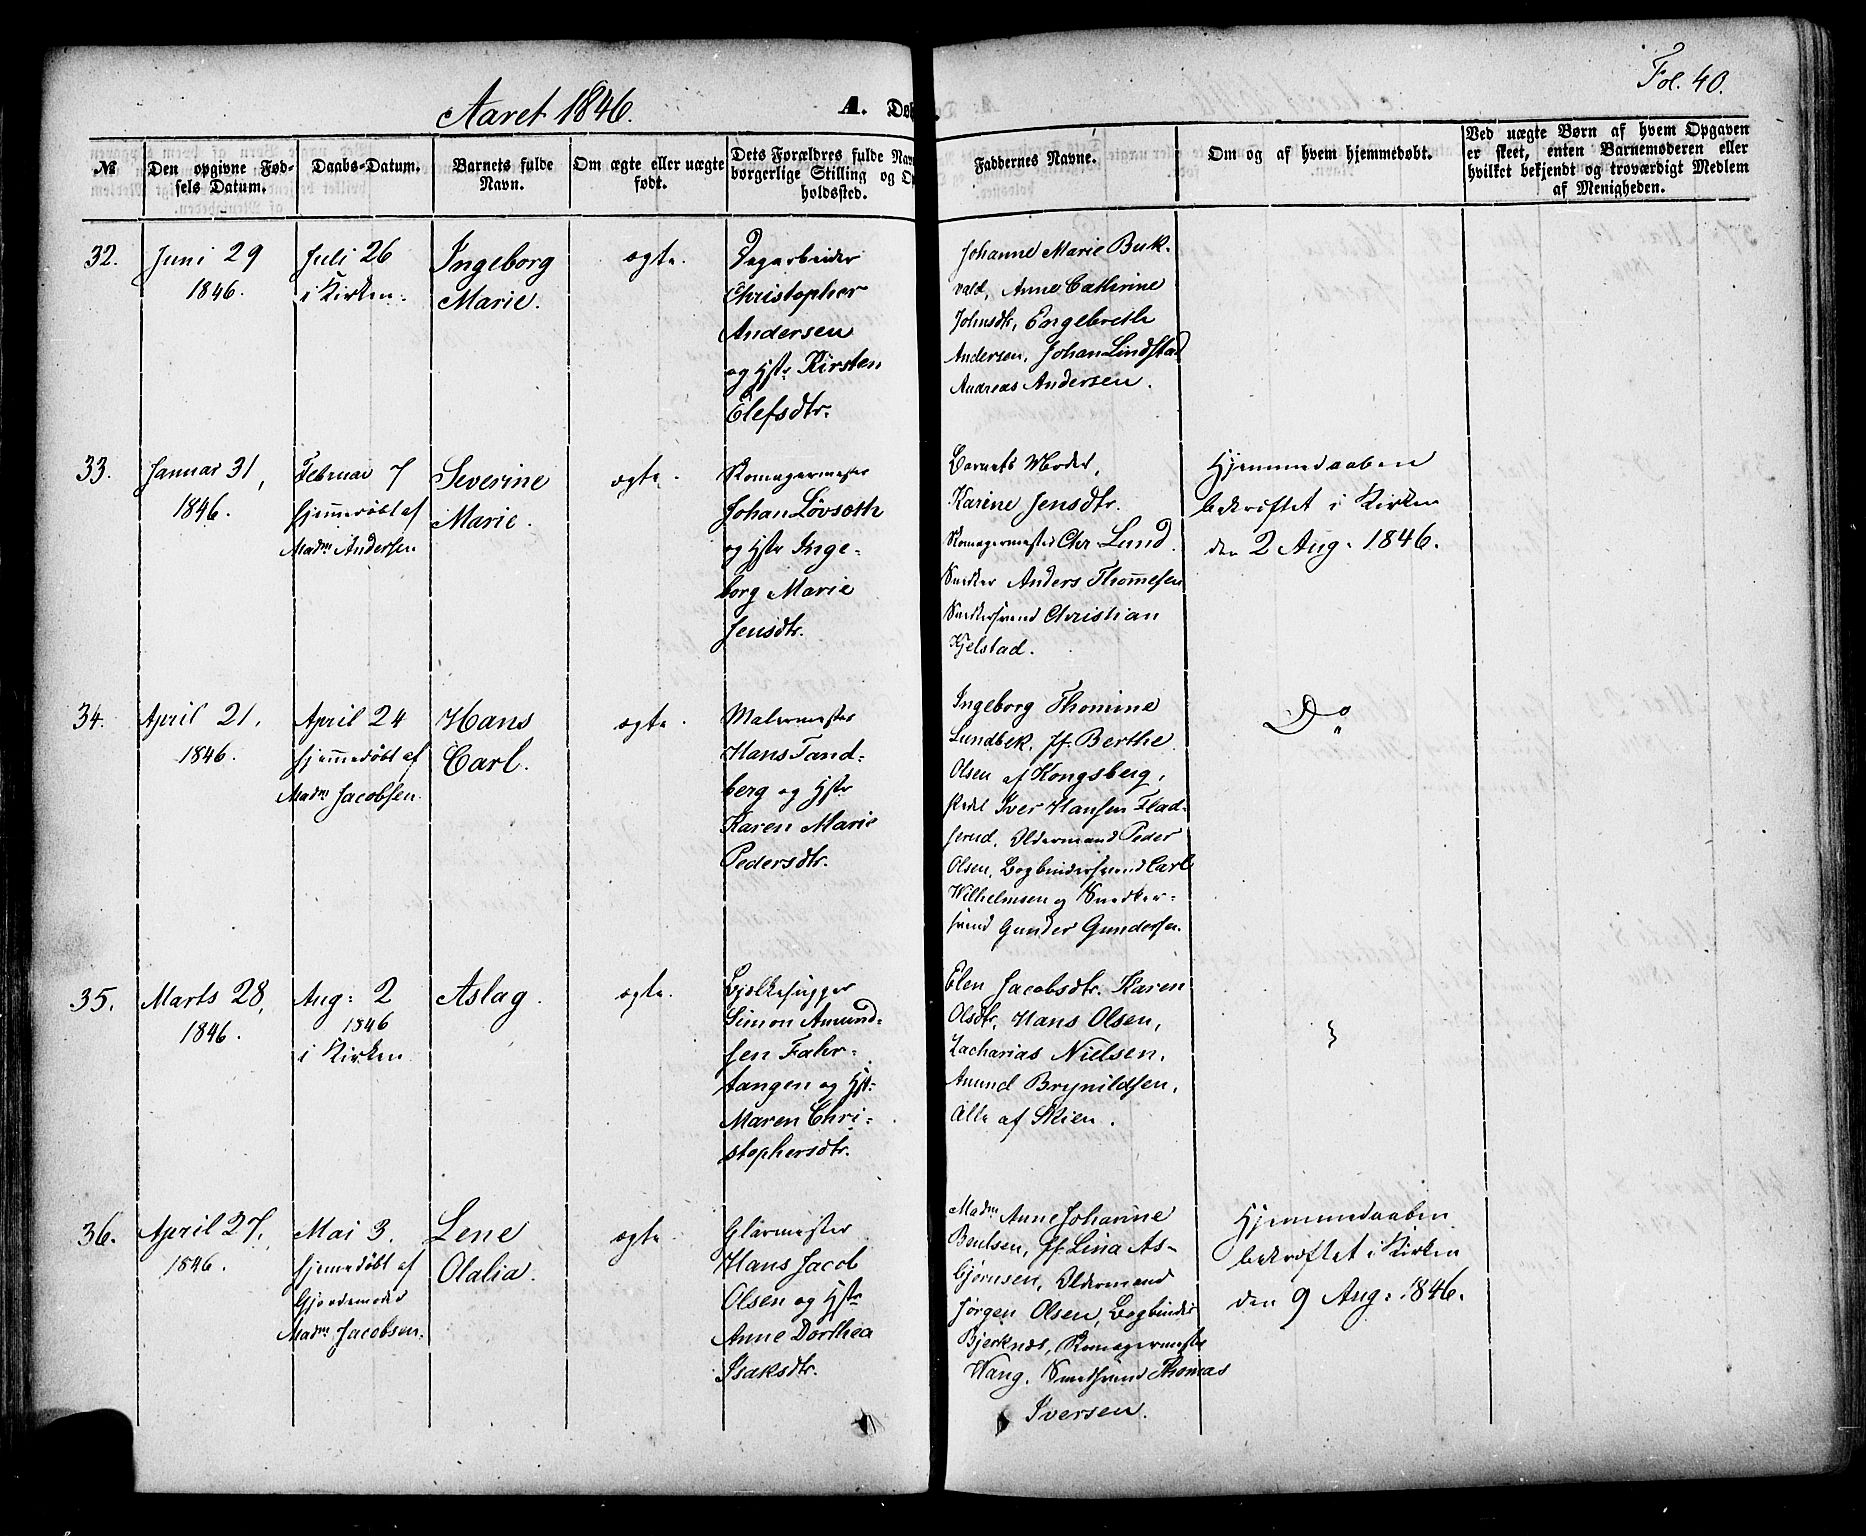 Fol. 40.
Aaret 1846.
A.
№
Den opgivne Fød-
sels Datum.
Daabs-Datum.
Barnets fulde
Navn.
Om ægte eller uægte
født.
Dets Forældres fulde Nav
borgerlige Stilling og Op
holdssted.
Faddernes Navne.
Om og af hvem hjemmedøbt.
Ved uægte Børn af hvem Opgaven
er skeet, enten Barnemøderen eller
hvilket bekjendt og troværdigt Medlem
af Menigheden.
32.
Juni 29
1846.
Juli 26
i Kirken.
Ingeborg
Marie.
ægte.
Dagarbeider
Christopher
Andersen
og Hstr Kirsten
Olefsdtr.
Johanne Marie Buk-
vald, Anne Cathrine
Johnsdtr, Engebreth
Andersen, Johan Lindstad
Andreas Andersen.
33.
Januar 31,
1846.
Februar 7
hjemmedøbt af
Madm Andersen
Severine
Marie.
ægte.
Skomagermester
Johan Løvseth
og Hstr Inge-
borg Marie
Jensdtr.
Barnets Moder,
Karine Jensdtr.
Skomagermester Chr. Lund.
Snedker Anders Thommesen
Snedkersvend Christian
Kjelstad.
Hjemmedaaben
bekræftet i Kirken
den 2 Aug. 1846.
34.
April 21.
1846.
April 24
hjemmedøbt af
Madm Jacobsen.
Hans
Carl.
ægte.
Malermester
Hans Tand-
berg og Hstr
Karen Marie
Pedersdtr.
Ingeborg Thomine
Lundbek, Jf. Berthe
Olsen af Kongsberg,
Iver Hansen Flad-
serud, Oldermand Peder
Olsen, Bogbindersvend Carl
Wilhelmsen og Snedker-
svend Gunder Gundersen.
Do
35.
Marts 28,
1846.
Aug: 2
1846
i Kirken.
Aslag.
ægte.
Bjelkehugger
Simon Amund-
sen Faler-
tangen og Hstr
Maren Chri-
stophersdtr.
Elen Jacobsdtr. Karen
Olsdtr, Hans Olsen,
Zacharias Nielsen,
Amund Brynildsen,
Alle af Skien.
36.
April 27,
1846.
Mai 3.
hjemmedøbt af
Gjordemoder
Madm Jacobsen.
Lene
Olalia.
ægte
Glarmester
Hans Jacob
Olsen og Hstr
Anne Dorthea
Isaksdtr.
Madm Anne Johanne
Bentsen, Jf. Lina As-
bjørnsen, Oldermand
Jørgen Olsen, Bogbinder
Bjerknes, Skomagermester
Wang, Smedsvend Thomas
Iversen.
Hjemmedaaben
bekræftet i Kirken
den 9 Aug: 1846.